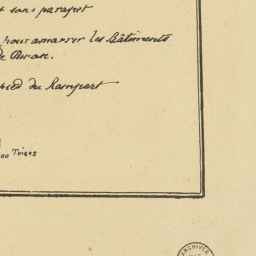 t sans parapet
pour amarrer les Bâtiments
de
pied du Rampart
00 Toises
ARCHIVES